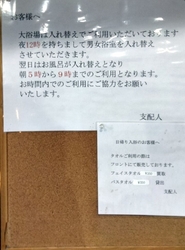 お客様へ
大浴場は入れ替えでご利用いただいております
夜12時を持ちまして男女浴室を入れ替え
させていただきます。
翌日はお風呂が入れ替えとなり
朝5時から9時までのご利用となります。
お時間内でのご利用にご協力をお願い
いたします。
支配人
日帰り入浴のお客様へ
タオルご利用の際は
フロントにて販売しております。
フェイスタオル
バスタオル
支配人